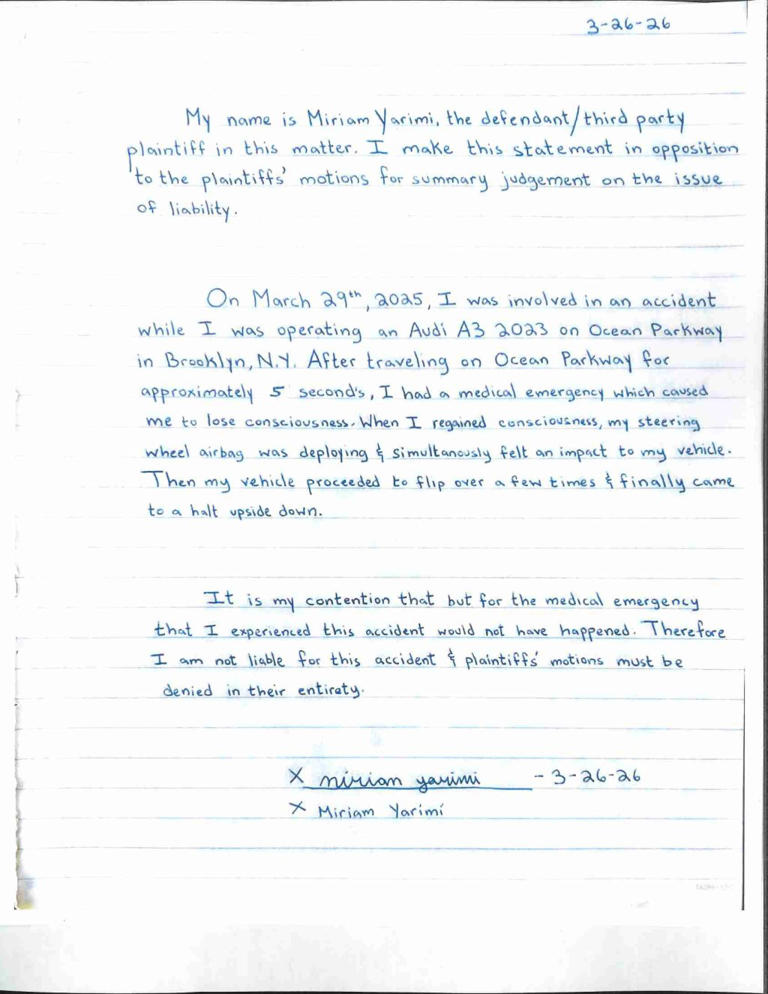 3-26-26
My name is Miriam Yarimi, the defendant/third party
plaintiff in this matter. I make this statement in opposition
to the plaintiffs' motions for summary judgement on the issue
of liability.
On March 29th, 2025, I was involved in an accident
while I was operating an Audi A3 2023 on Ocean Parkway
in Brooklyn, N.Y. After traveling on Ocean Parkway for
approximately 5 second's, I had a medical emergency which caused
me to lose consciousness. When I regained consciousness, my steering
wheel airbag was deploying & simultanously felt an impact to my vehicle.
Then my vehicle proceeded to flip over a few times & finally came
to a halt upside down.
It is my contention that but for the medical emergency
that I experienced this accident would not have happened. Therefore
I am not liable for this accident & plaintiffs' motions must be
denied in their entiraty.
X miriam yarimi - 3-26-26
X Miriam Yarimi